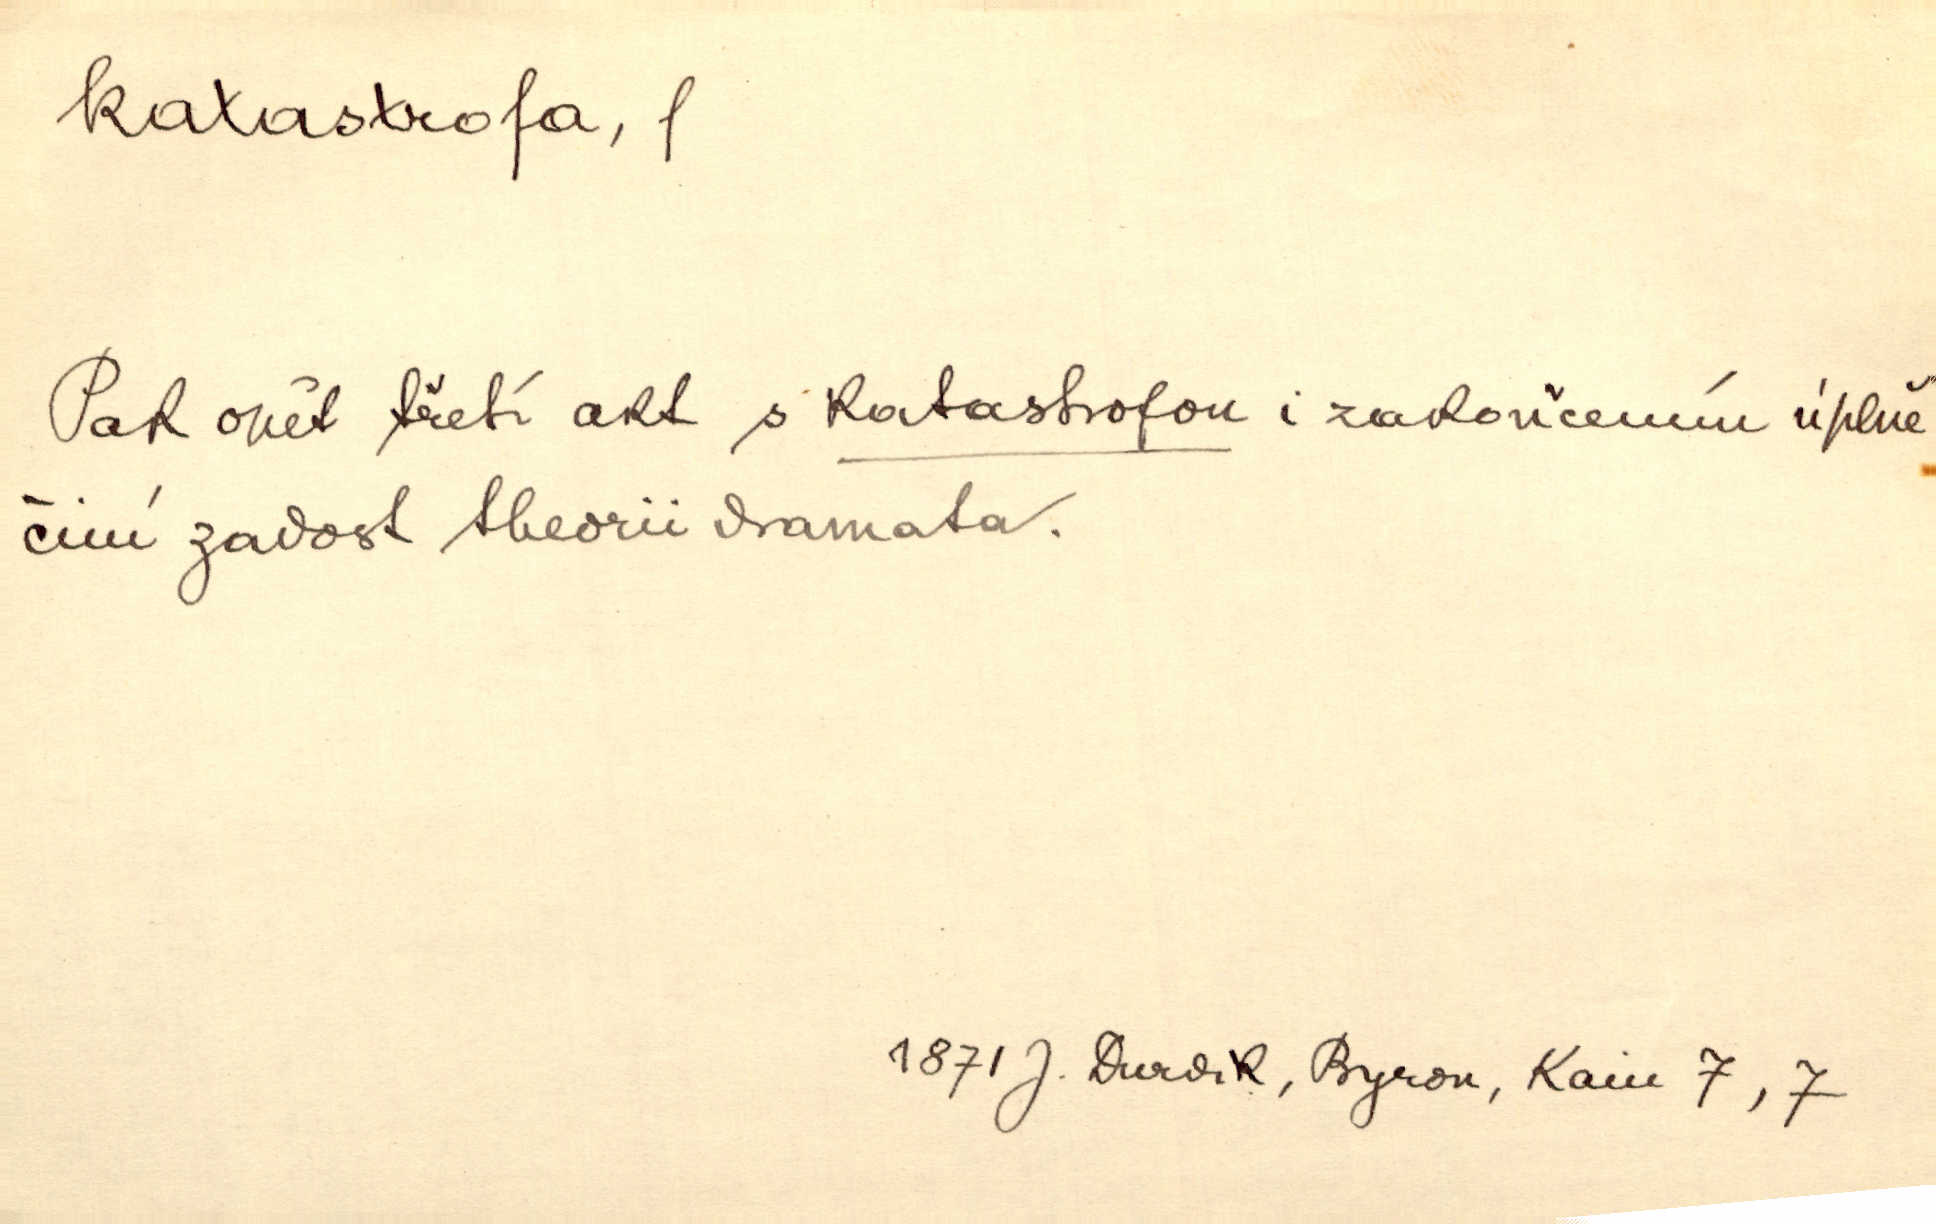 katastrofa, f
Pak opět třetí akt s katastrofou i zakončením úplně
činí zadost theorii dramata.
1871 J. Durdik, Byron, Kain 7, 7